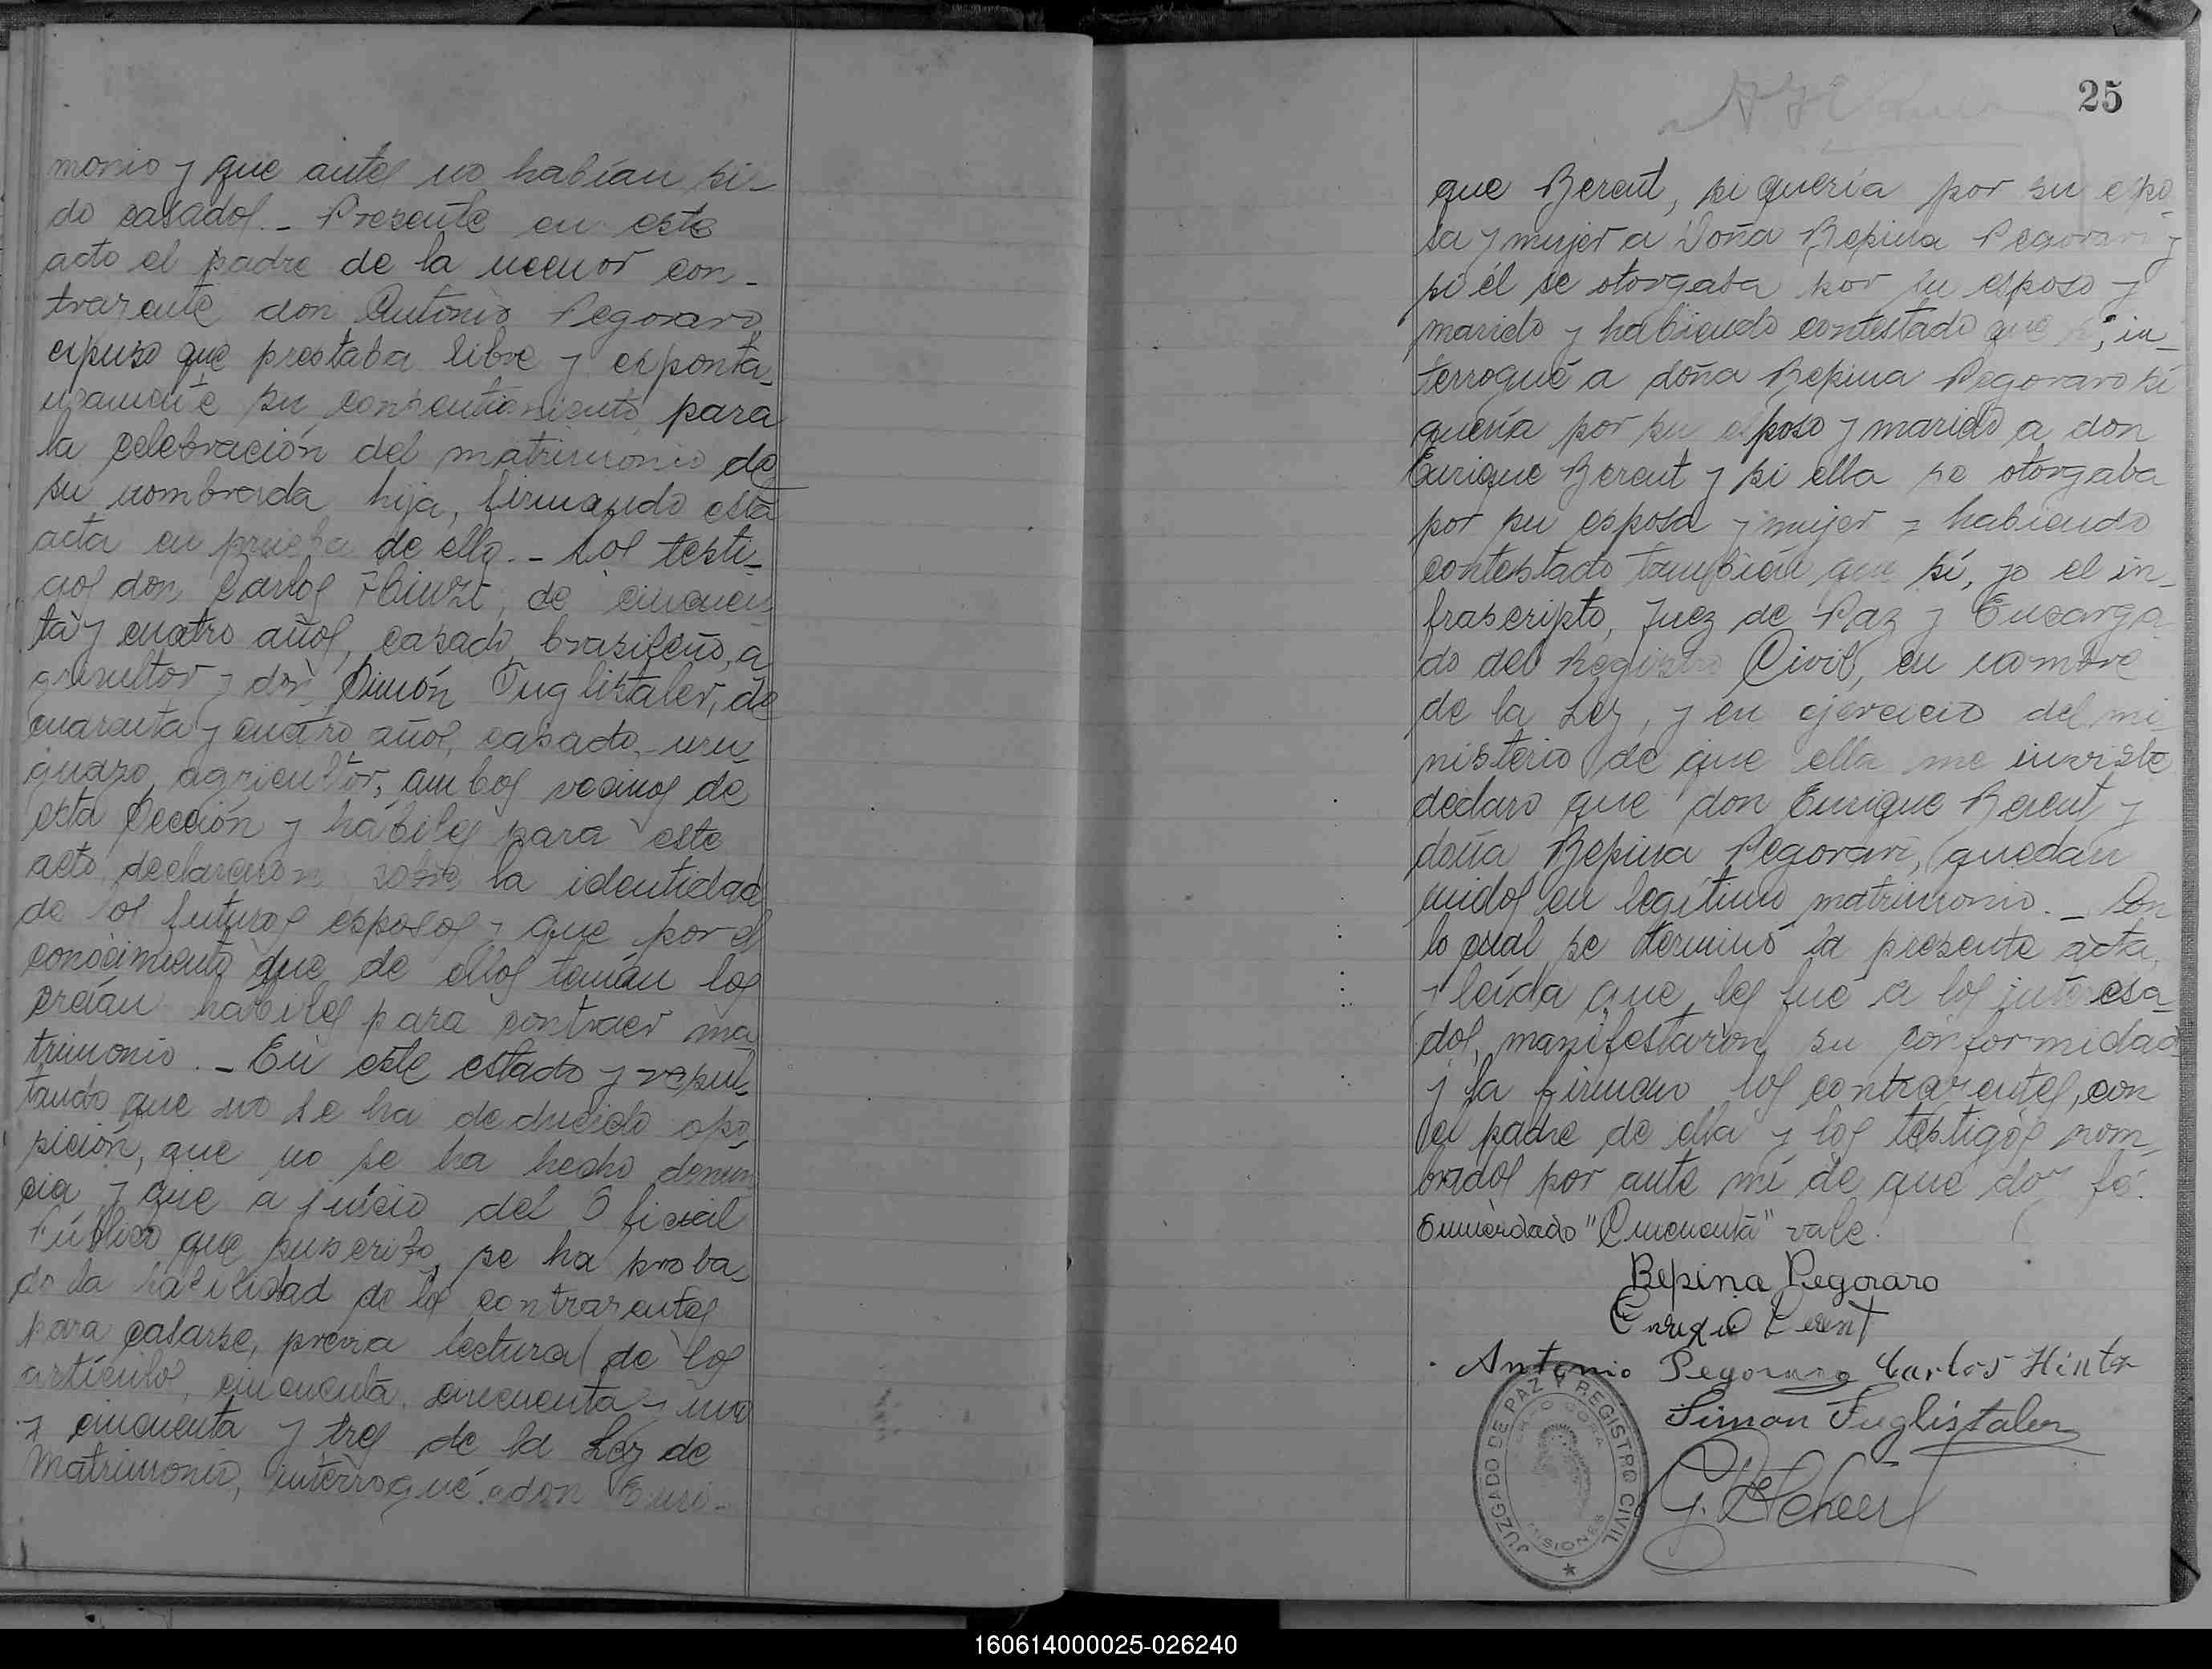 monio y que antes no habían si-
do casados.- Presente en este
acto el padre de la menor con-
trayente don Antonio Pegoraro,
expuso que prestaba libre y esponta-
neamente su consentimiento para
la celebración del matrimonio de
su nombrada hija, firmando esta
acta en prueba de ello.- Los testi-
gos don Carlos Hintz, de cincuen
ta y cuatro años, casado, brasileño, a
gricultor y don Simón Fuglistaler, de
cuarenta y cuatro años, casado, uru-
guayo, agricultor, ambos vecinos de
esta Sección y hábiles para este
acto declararon sobre la identidad
de los futuros esposos y que por el
conocimiento que de ellos tenían los
creían hábiles para contraer ma
trimonio.- En este estado y resul-
tando que no se ha deducido opo-
sición, que no se ha hecho denun
cia y que a juicio del Oficial
Público que suscribe, se ha proba-
do la habilidad de los contrayentes
para casarse, previa lectura de los
artículos, cincuenta, cincuenta y uno
y cincuenta y tres de la Ley de
Matrimonio, interrogué a don Enri-
25
que Berent, si quería por su espo-
sa y mujer a Doña Bepina Pegoraro y
si él se otorgaba por su esposo y
marido y habiendo contestado que sí, in-
terrogué a doña Bepina Pegoraro si
quería por su esposo y marido a don
Enrique Berent y si ella se otorgaba
por su esposa y mujer y habiendo
contestado también que sí, yo el in-
frascripto, Juez de Paz y Encarga-
do del Registro Civil, en nombre
de la Ley, y en ejercicio del mi-
nisterio de que ella me inviste
declaro que don Enrique Berent y
doña Bepina Pegoraro, quedan
unidos en legítimo matrimonio.- Con
lo cual se terminó la presente acta,
y leída que les fué a los interesa-
dos, manifestaron su conformidad
y la firman los contrayentes, con
el padre de ella y los testigos nom-
brados por ante mí de que doy fé.
Enmendado "Cincuenta" vale.
Bepina Pegoraro
Enrique Berent
Antonio Pegoraro Carlos Hintz
Simon Fuglistaler
JUZGADO DE PAZ Y REGISTRO CIVIL
MISIONES
160614000025-026240